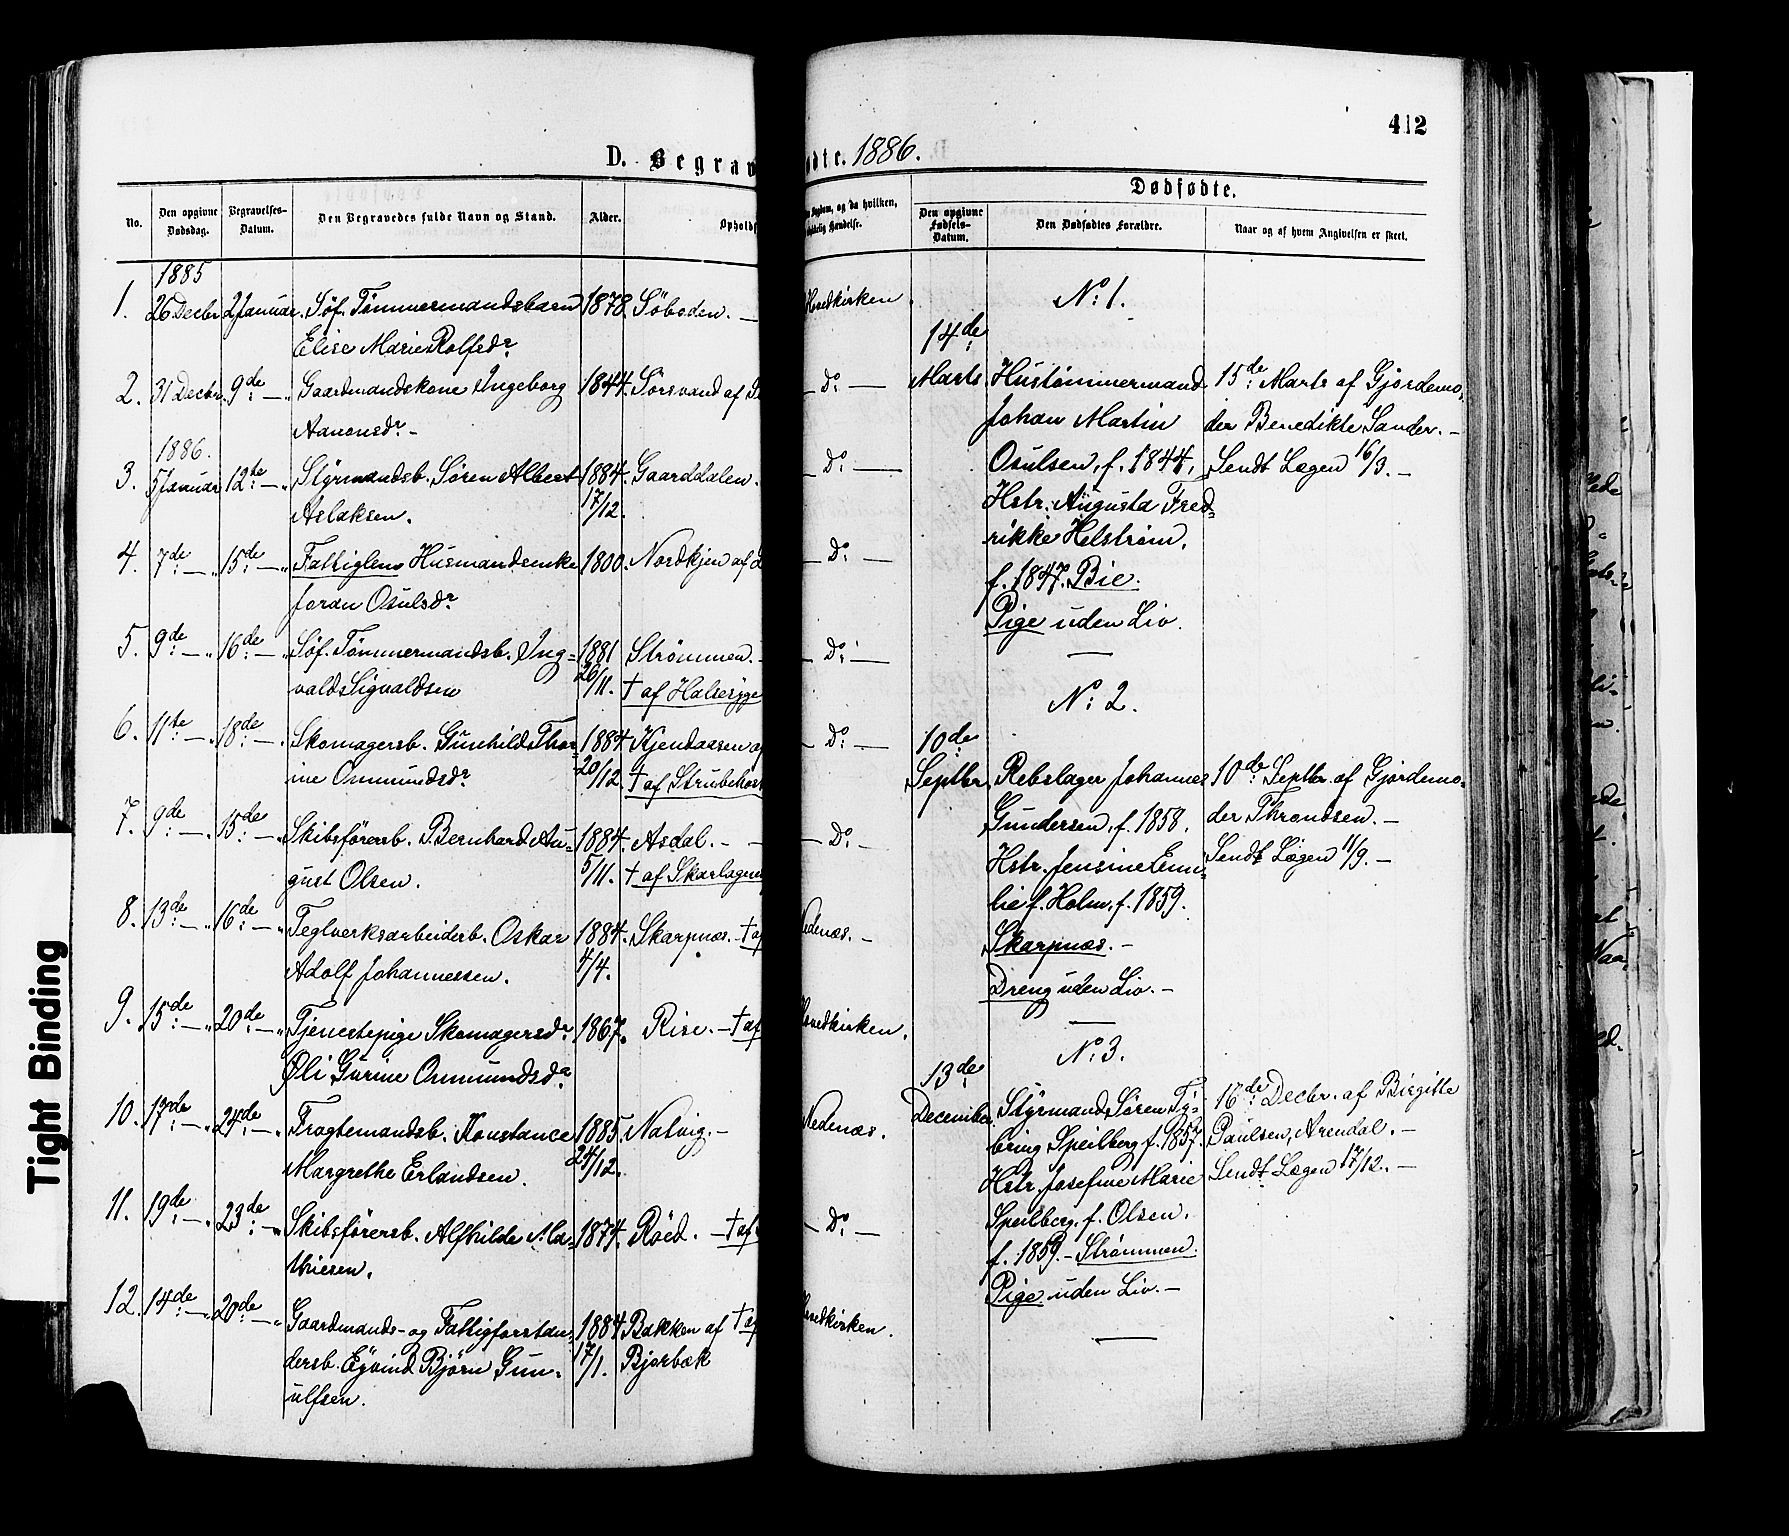 412
D. Begrav
ødte. 1886.
No.
Den opgivne
Dødsdag.
Begravelses-
Datum.
Den Begravedes fulde Navn og Stand.
Alder.
Opholds
Sygdom, og da hvilken,
Hændelse.
Dødfødte.
Den opgivne
Fødsels-
Datum.
Den Dødfødtes Forældre.
Naar og af hvem Angivelsen er skeet.
1885
1. 26 Decbr. 2 Januar. Søf. Tømmermandsbarn 1878. Söboden. —
Elise Marie Rolfsdr
2. 31 Decbr. 9de —„ Gaardmandskone Ingeborg 1844. Sørsvand af
Aanonsdr. -
1886.
3. 5 Januar 12te —„ Styrmandsb. Søren Albert 1884. Gaarddalen.
Aslaksen. 17/12.
4. 7de —„ 15de —„ Fattiglem Husmandsenke 1800. Nordkjen af
Joran Osulsdr
5. 9de —„ 16de —„ Søf. Tømmermandsb. Ing= 1881 Strømmen. -
vald Sigvaldsen 26/11. † af Halssyge
6. 11te —„ 18de —„ Skomagersb. Gunhild Thor= 1884. Kjendaasen
ine Ommundsdr 20/12. † af Strubehost
7. 9de —„ 15de —„ Skibsførersb. Bernhard Au= 1884. Asdal. - -
gust Olsen. 5/11. † af Skarlagen
8. 13de —„ 16de —„ Teglverksarbeiderb. Oskar 1884. Skarpnæs. - † af
Adolf Johannessen. 4/4.
9. 15de —„ 20de —„ Tjenestepige Skomagersdr 1867. Rise. - † af
Øli Gurine Ommundsdr
10. 17de —„ 24de —„ Fragtemandsb. Konstance 1885 Natvig. -
Margrethe Erlandsen. 24/12.
11. 19de —„ 23de —„ Skibsførersb. Alfhilde Ma= 1874. Röed. - † af
thiesen.
12. 14de —„ 20de —„ Gaardmands- og Fattigforstan= 1884 Bakken af † af
dersb. Eyvind Bjørn Gun= 17/1. Bjorbæk
ulfsen.
Hovedkirken.
— Do —
— Do —
— Do —
— Do —
— Do —
— Do —
Nedenæs. -
Hovedkirken.
Nedenæs.
— Do —
Hovedkirken.
No 1.
14de
Marts Hustømmermand 15de Marts af Gjordemo=
Johan Martin der Benedikte Sander. -
Osulsen, f. 1844, Sendt Lægen 16/3. -
Hstr. Augusta Fred=
rikke Helstrøm.
f. 1847. Bie.
Pige uden Liv.
No 2.
10de
Septbr. Rebslager Johannes 10de Septbr. af Gjordemo=
Gundersen, f. 1858. der Throndsen. -
Hstr. Jensine Emi= Sendt Lægen 11/9. -
lie f. Holm, f. 1859.
Skarpnæs. -
Dreng uden Liv. -
No 3.
13de
December. Styrmand Søren Ty= 16de Decbr. af Birgitte
bring Speilberg f. 1857. Paulsen, Arendal. -
Hstr. Josefine Marie Sendt Lægen 17/12. -
Speilberg, f. Olsen.
f. 1859. - Strømmen.
Pige uden Liv. -
Tight Binding